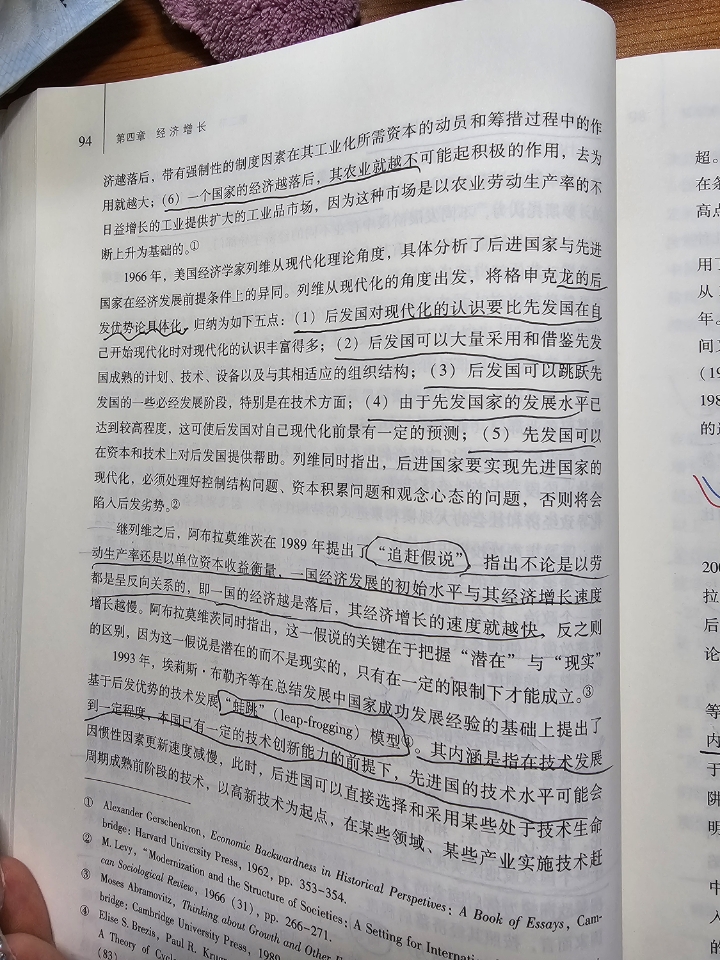 94 第四章 经济增长
济越落后，带有强制性的制度因素在其工业化所需资本的动员和筹措过程中的作
用就越大；（6）一个国家的经济越落后，其农业就越不可能起积极的作用，去为
日益增长的工业提供扩大的工业品市场，因为这种市场是以农业劳动生产率的不
断上升为基础的。①
1966年，美国经济学家列维从现代化理论角度，具体分析了后进国家与先进
国家在经济发展前提条件上的异同。列维从现代化的角度出发，将格申克龙的后
发优势论具体化，归纳为如下五点：（1）后发国对现代化的认识要比先发国在自
己开始现代化时对现代化的认识丰富得多；（2）后发国可以大量采用和借鉴先发
国成熟的计划、技术、设备以及与其相适应的组织结构；（3）后发国可以跳跃先
发国的一些必经发展阶段，特别是在技术方面；（4）由于先发国家的发展水平已
达到较高程度，这可使后发国对自己现代化前景有一定的预测；（5）先发国可以
在资本和技术上对后发国提供帮助。列维同时指出，后进国家要实现先进国家的
现代化，必须处理好控制结构问题、资本积累问题和观念心态的问题，否则将会
陷入后发劣势。②
继列维之后，阿布拉莫维茨在1989年提出了“追赶假说”，指出不论是以劳
动生产率还是以单位资本收益衡量，一国经济发展的初始水平与其经济增长速度
都是呈反向关系的，即一国的经济越是落后，其经济增长的速度就越快，反之则
增长越慢。阿布拉莫维茨同时指出，这一假说的关键在于把握“潜在”与“现实”
的区别，因为这一假说是潜在的而不是现实的，只有在一定的限制下才能成立。③
1993年，埃莉斯·布勒齐等在总结发展中国家成功发展经验的基础上提出了
基于后发优势的技术发展“蛙跳”（leap-frogging）模型④。其内涵是指在技术发展
到一定程度，本国已有一定的技术创新能力的前提下，先进国的技术水平可能会
因惯性因素更新速度减慢，此时，后进国可以直接选择和采用某些处于技术生命
周期成熟前阶段的技术，以高新技术为起点，在某些领域、某些产业实施技术赶
① Alexander Gerschenkron, Economic Backwardness in Historical Perspetives: A Book of Essays, Cam-
bridge: Harvard University Press, 1962, pp. 353-354.
② M. Levy, “Modernization and the Structure of Societies: A Setting for
can Sociological Review, 1966 (31), pp. 266-271.
③ Moses Abramovitz, Thinking about Growth and Other
bridge: Cambridge University Press, 1989
④ Elise S. Brezis, Paul R.
A Theory of
(83)
超。
在条
高点
用
从
年。
间
(19
198
的
200
拉
后
论
等
内
于
阱
明
中
人
的